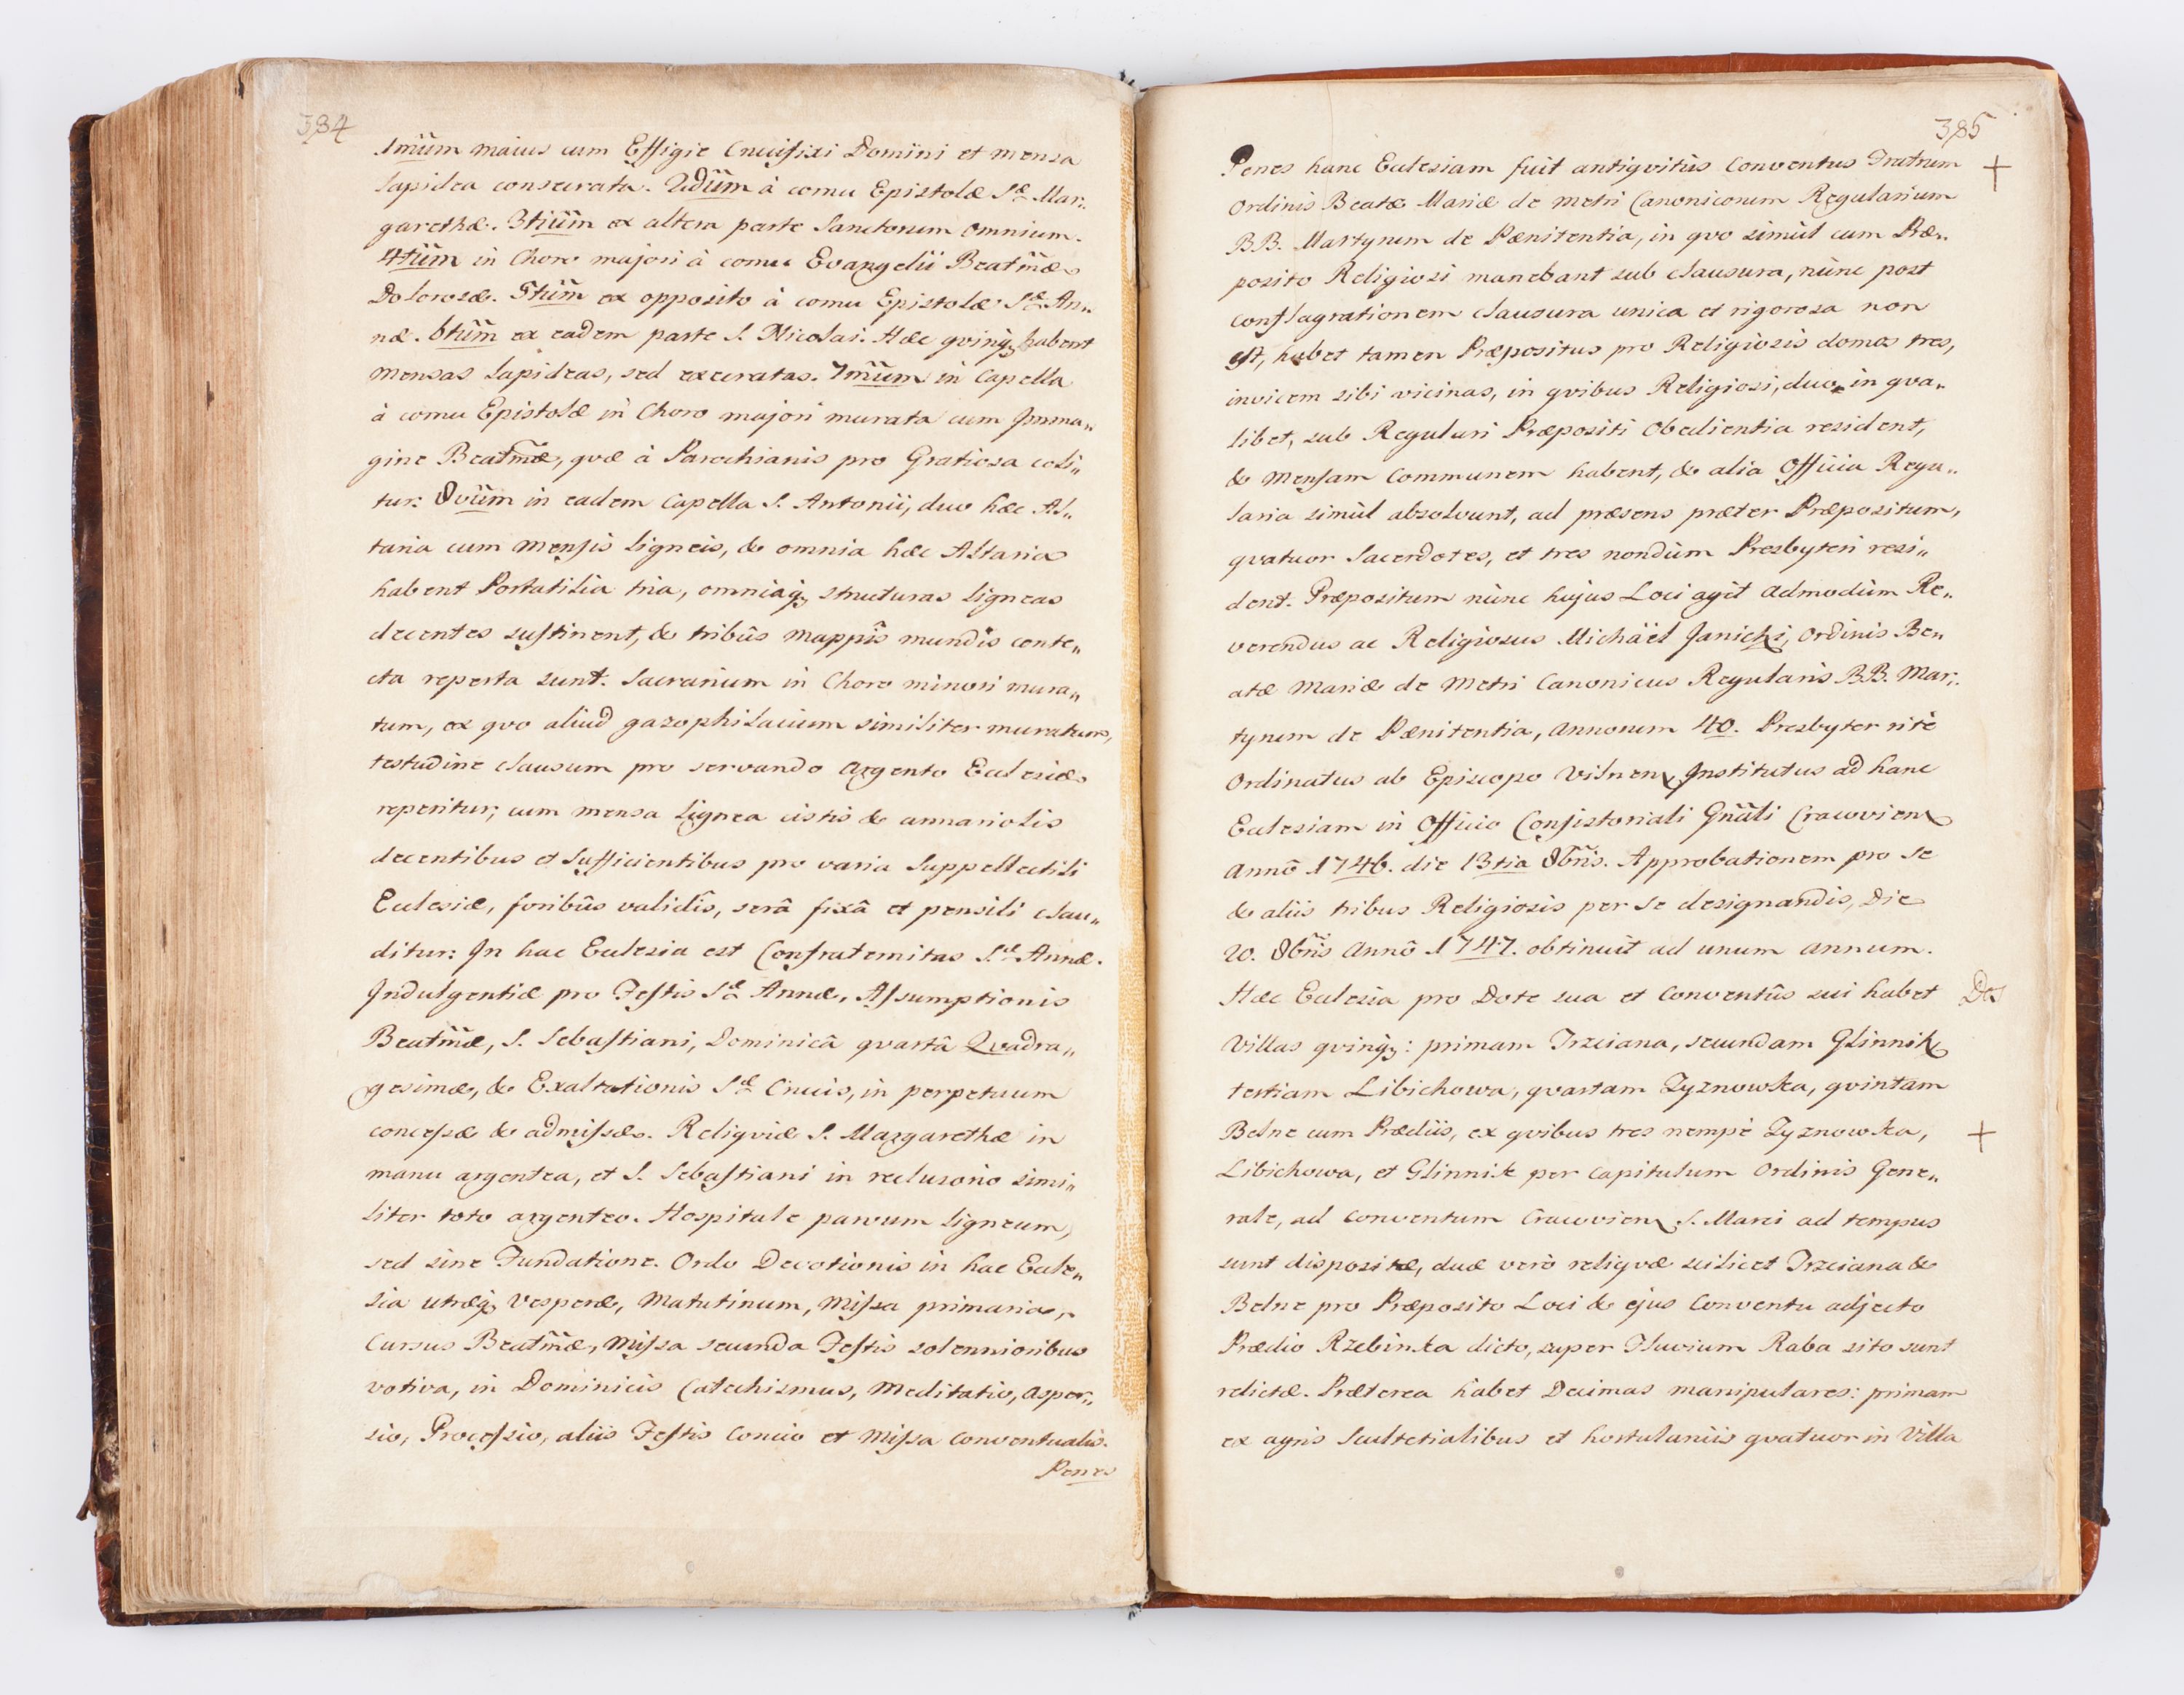 384
1mum maius cum Effigie Crucifixi Domini et mensa
lapidea consecrata. 2dum à cornu Epistolæ S.æ Mar„
garethæ. 3tium ex altera parte Sanctorum omnium.
4tum in Choro majori à cornu Evangelii Beatmæ
Dolorosæ. 5tum ex opposito à cornu Epistolæ S.æ An„
næ. 6tum ex eadem parte S. Nicolai. Hæc qvinq; habent
mensas lapideas, sed execratas. 7mum in Capella
à cornu Epistolæ in Choro majori murata cum Imma„
gine Beatmæ, qvæ à Parochianis pro Gratiosa coli„
tur: 8vum in eadem Capella S. Antonii, duo hæc Al„
taria cum mensis ligneis, & omnia hæc Altaria
habent Portatilia tria, omniaq; structuras ligneas
decentes sustinent, & tribûs mappîs mundîs conte„
cta reperta sunt. Sacrarium in Choro minori mura„
tum, ex qvo aliud gazophilacium similiter muratum,
testudine clausum pro servando argento Ecclesiæ
reperitur; cum mensa lignea cistis & armariolis
decentibus et sufficientibus pro varia suppellectili
Ecclesiæ, foribûs validîs, serâ fixâ et pensili clau„
ditur: In hac Ecclesia est Confraternitas S.æ Annæ.
Indulgentiæ pro Festis S.æ Annæ, Assumptionis
Beatmæ, S. Sebastiani, Dominicâ qvartâ Qvadra„
gesimæ, & Exaltationis S.æ Crucis, in perpetuum
concessæ & admissæ. Reliqviæ S. Margarethæ in
manu argentea, et S. Sebastiani in reclusorio simi„
liter toto argenteo. Hospitale parvum ligneum,
sed sine Fundatione. Ordo Devotionis in hac Eccle„
sia utræq; Vesperæ, Matutinum, Missa primaria,
Cursus Beatmæ, Missa secunda Festis solennioribus
votiva, in Dominicis Catechismus, Meditatio, Asper„
sio, Processio, aliis Festis Concio et Missa Conventualis.
Penes
385
Penes hanc Ecclesiam fuit antiqvitùs Conventus Fratrum +
Ordinis Beatæ Mariæ de Metri Canonicorum Regularium
B.B. Martyrum de Pænitentia, in qvo simùl cum Præ„
posito Religiosi manebant sub clausura, nùnc post
conflagrationem clausura unica et rigorosa non
est, habet tamen Præpositus pro Religiosis domos tres,
invicem sibi vicinas, in qvibus Religiosi, duo in qva„
libet, sub Regulari Præpositi Obedientia resident,
& Mensam Communem habent, & alia Officia Regu„
laria simùl absolvunt, ad præsens præter Præpositum,
qvatuor Sacerdotes, et tres nondùm Presbyteri resi„
dent. Præpositum nùnc hujus Loci agit Admodùm Re„
verendus ac Religiosus Michäel Janicki, Ordinis Be„
atæ Mariæ de Metri Canonicus Regularis B.B. Mar„
tyrum de Pænitentia, Annorum 40. Presbyter ritè
Ordinatus ab Episcopo Vilnen Institutus ad hanc
Ecclesiam in Officio Consistoriali Gnãli Cracovien
Annô 1746. die 13tia 8bris. Approbationem pro se
& aliis tribus Religiosis per se designandis, Die
20. 8bris Annô 1747. obtinuit ad unum annum.
Hæc Ecclesia pro Dote sua et Conventûs sui habet Dos
Villas qvinq;: primam Trzciana, secundam Glinnik
tertiam Libichowa, qvartam Zyznowka, qvintam
Belne cum Prædiis, ex qvibus tres nempè Zyznowka, +
Libichowa, et Glinnik per Capitulum Ordinis Gene„
rale, ad Conventum Cracovien S. Marci ad tempus
sunt dispositæ, duæ verò reliqvæ scilicet Trzciana &
Belne pro Præposito Loci & ejus Conventu adjecto
Prædio Rzebinka dicto, super Fluvium Raba sito sunt
relictæ. Præterea habet Decimas manipulares: primam
ex agris Scultetialibus et hortulaniis qvatuor in Villa